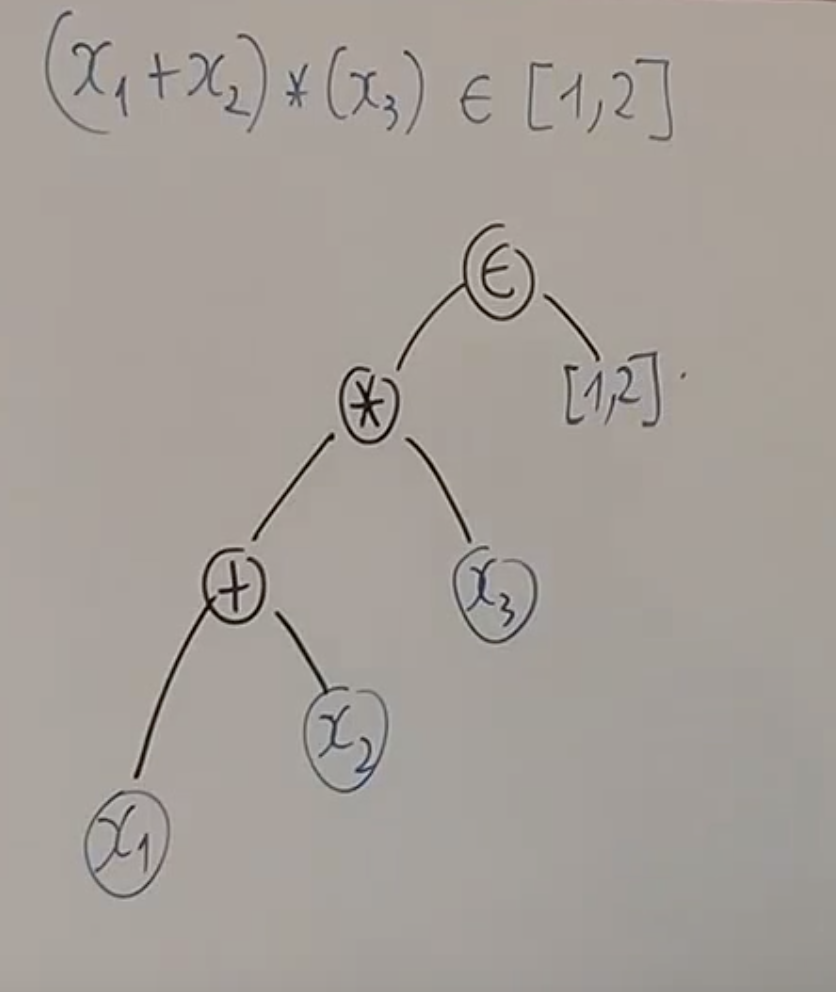 (x₁+x₂)*(x₃) ∈ [1,2]
∈
* [1,2]
+ x₃
x₂
x₁